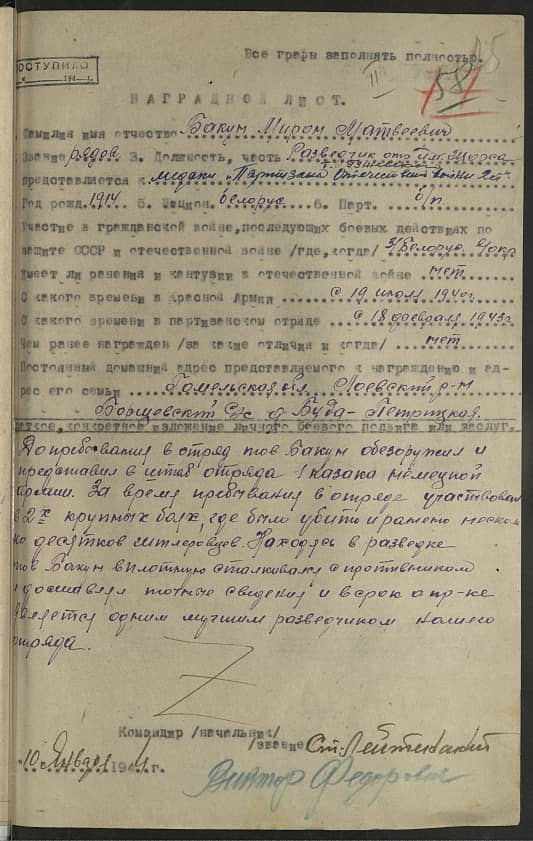 Все графы заполнять полностью.
ПОСТУПИЛО
194 г.
II
58
НАГРАДНОЙ ЛИСТ.
Фамилия имя отчество Бакун Мирон Матвеевич
Звание рядов. 3. Должность, часть Разведчик отр. Щорса
представляется к медали "Партизан Отечествен войны 2 ст"
Год рожд. 1914 5. Национ. белорус 6. Парт. б/п
Участие в гражданской войне, последующих боевых действиях по
защите СССР и отечественной войне /где, когда/ З/Белорус. в/окр
Имеет ли ранения и кантузии в отечественной войне нет
С какого времени в Красной Армии с 19 июля 1940г.
С какого времени в партизанском отряде с 18 февраля 1943г.
Чем ранее награжден /за какие отличия и когда/ нет
Постоянный домашний адрес представляемого к награждению и ад-
рес его семьи Гомельская обл Лоевский р-н
Борщевский с/с д. Буда-Петрицкая.
аткое, конкретное изложение личного боевого подвига или заслуг.
До пребывания в отряд тов Бакун обезоружил и
представил в штаб отряда 1 казака немецкой
армии. За время пребывания в отряде участвовал
в 2х крупных боях, где было убито и ранено неско
ко десятков гитлеровцев. Находясь в разведке
тов Бакун вплотную сталкивался с противником
и доставлял точные сведения и в срок о пр-ке
вляется одним лучшим разведчиком нашего
отряда.
Командир /начальник/
/звание Ст. Лейтенант
10 Января 1944г.
Виктор Федорович